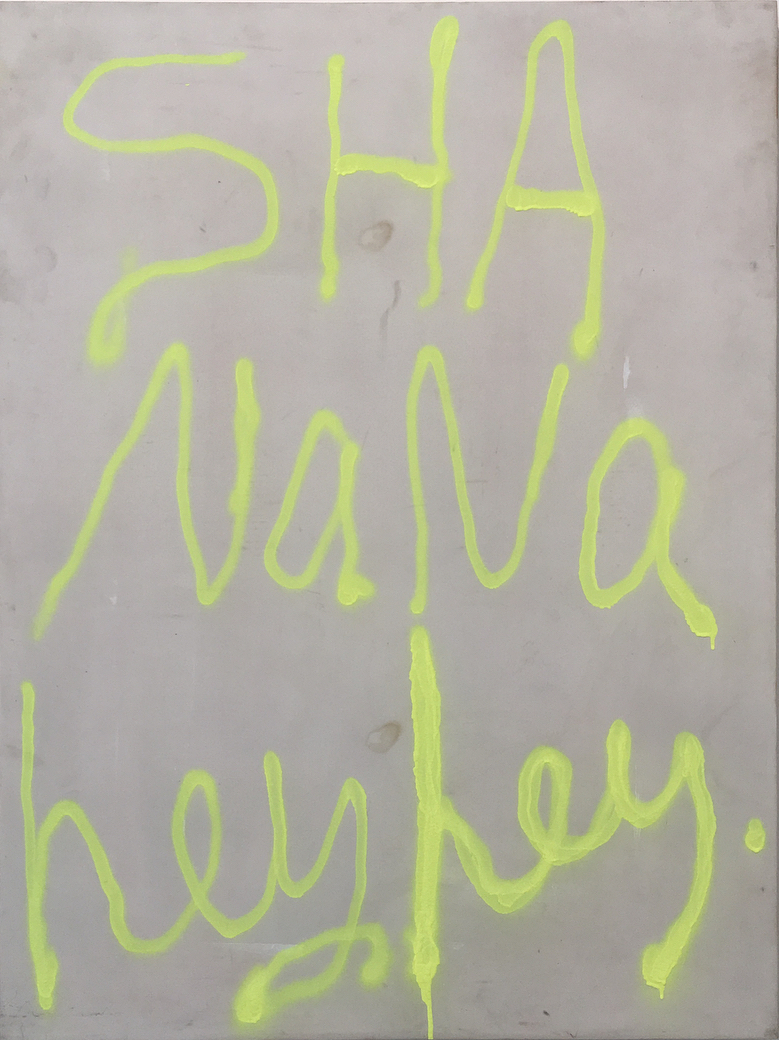 SHA
NaNa
hey hey.